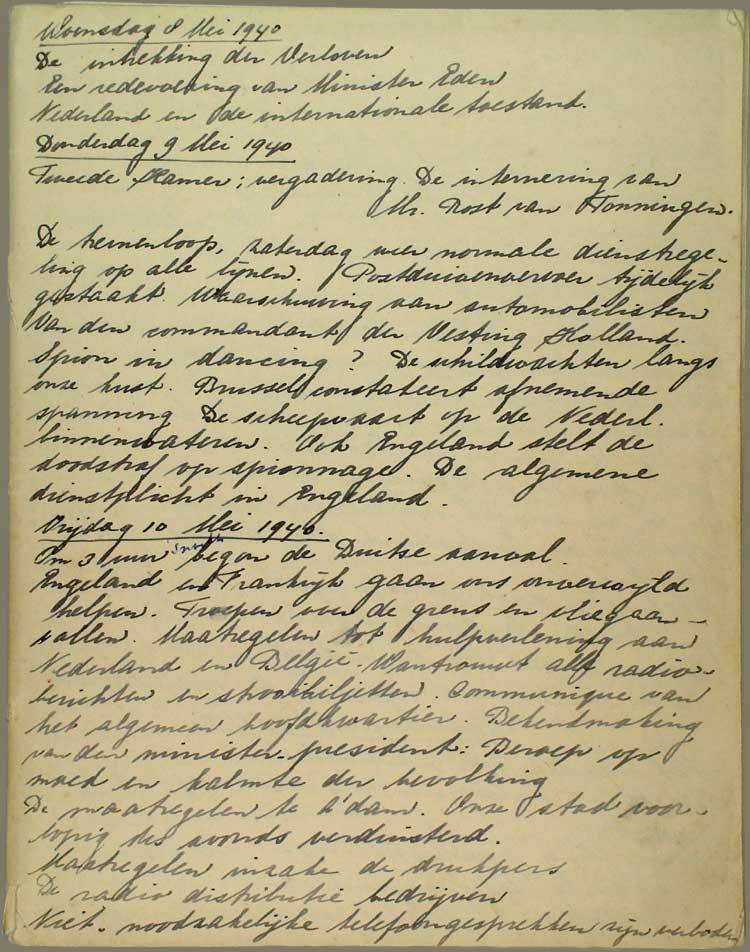 Woensdag 8 Mei 1940
De intrekking der Verloven
Een redevoering van Minister Eden
Nederland en de internationale toestand.
Donderdag 9 Mei 1940
Tweede Kamer; vergadering. De internering van
Mr. Rost van Tonningen.
De treinenloop, zaterdag weer normale dienstrege-
ling op alle lijnen. Postduivenvervoer tijdelijk
gestaakt. Waarschuwing aan automobilisten
Van den commandant der Vesting Holland.
Spion in dancing? De schildwachten langs
onze kust. Brussel constateert afnemende
spanning De scheepvaart op de Nederl.
binnenwateren. Ook Engeland stelt de
doodstraf op spionnage. De algemene
dienstplicht in Engeland.
Vrijdag 10 Mei 1940.
Om 3 uur begon de Duitse aanval.
Engeland en Frankrijk gaan ons onverwijld
helpen. Troepen over de grens en vliegaan-
vallen. Maatregelen tot hulpverlening aan
Nederland en België. Wantrouwt alle radio-
berichten en strooibiljetten. Communique van
het algemeen hoofdkwartier. Bekendmaking
van den minister-president: Beroep op
moed en kalmte der bevolking
De maatregelen te A'dam. Onze stad voor-
lopig des avonds verduisterd.
Maatregelen inzake de drukpers
De radio distributie bedrijven
Niet-noodzakelijke telefoongesprekken zijn verboden